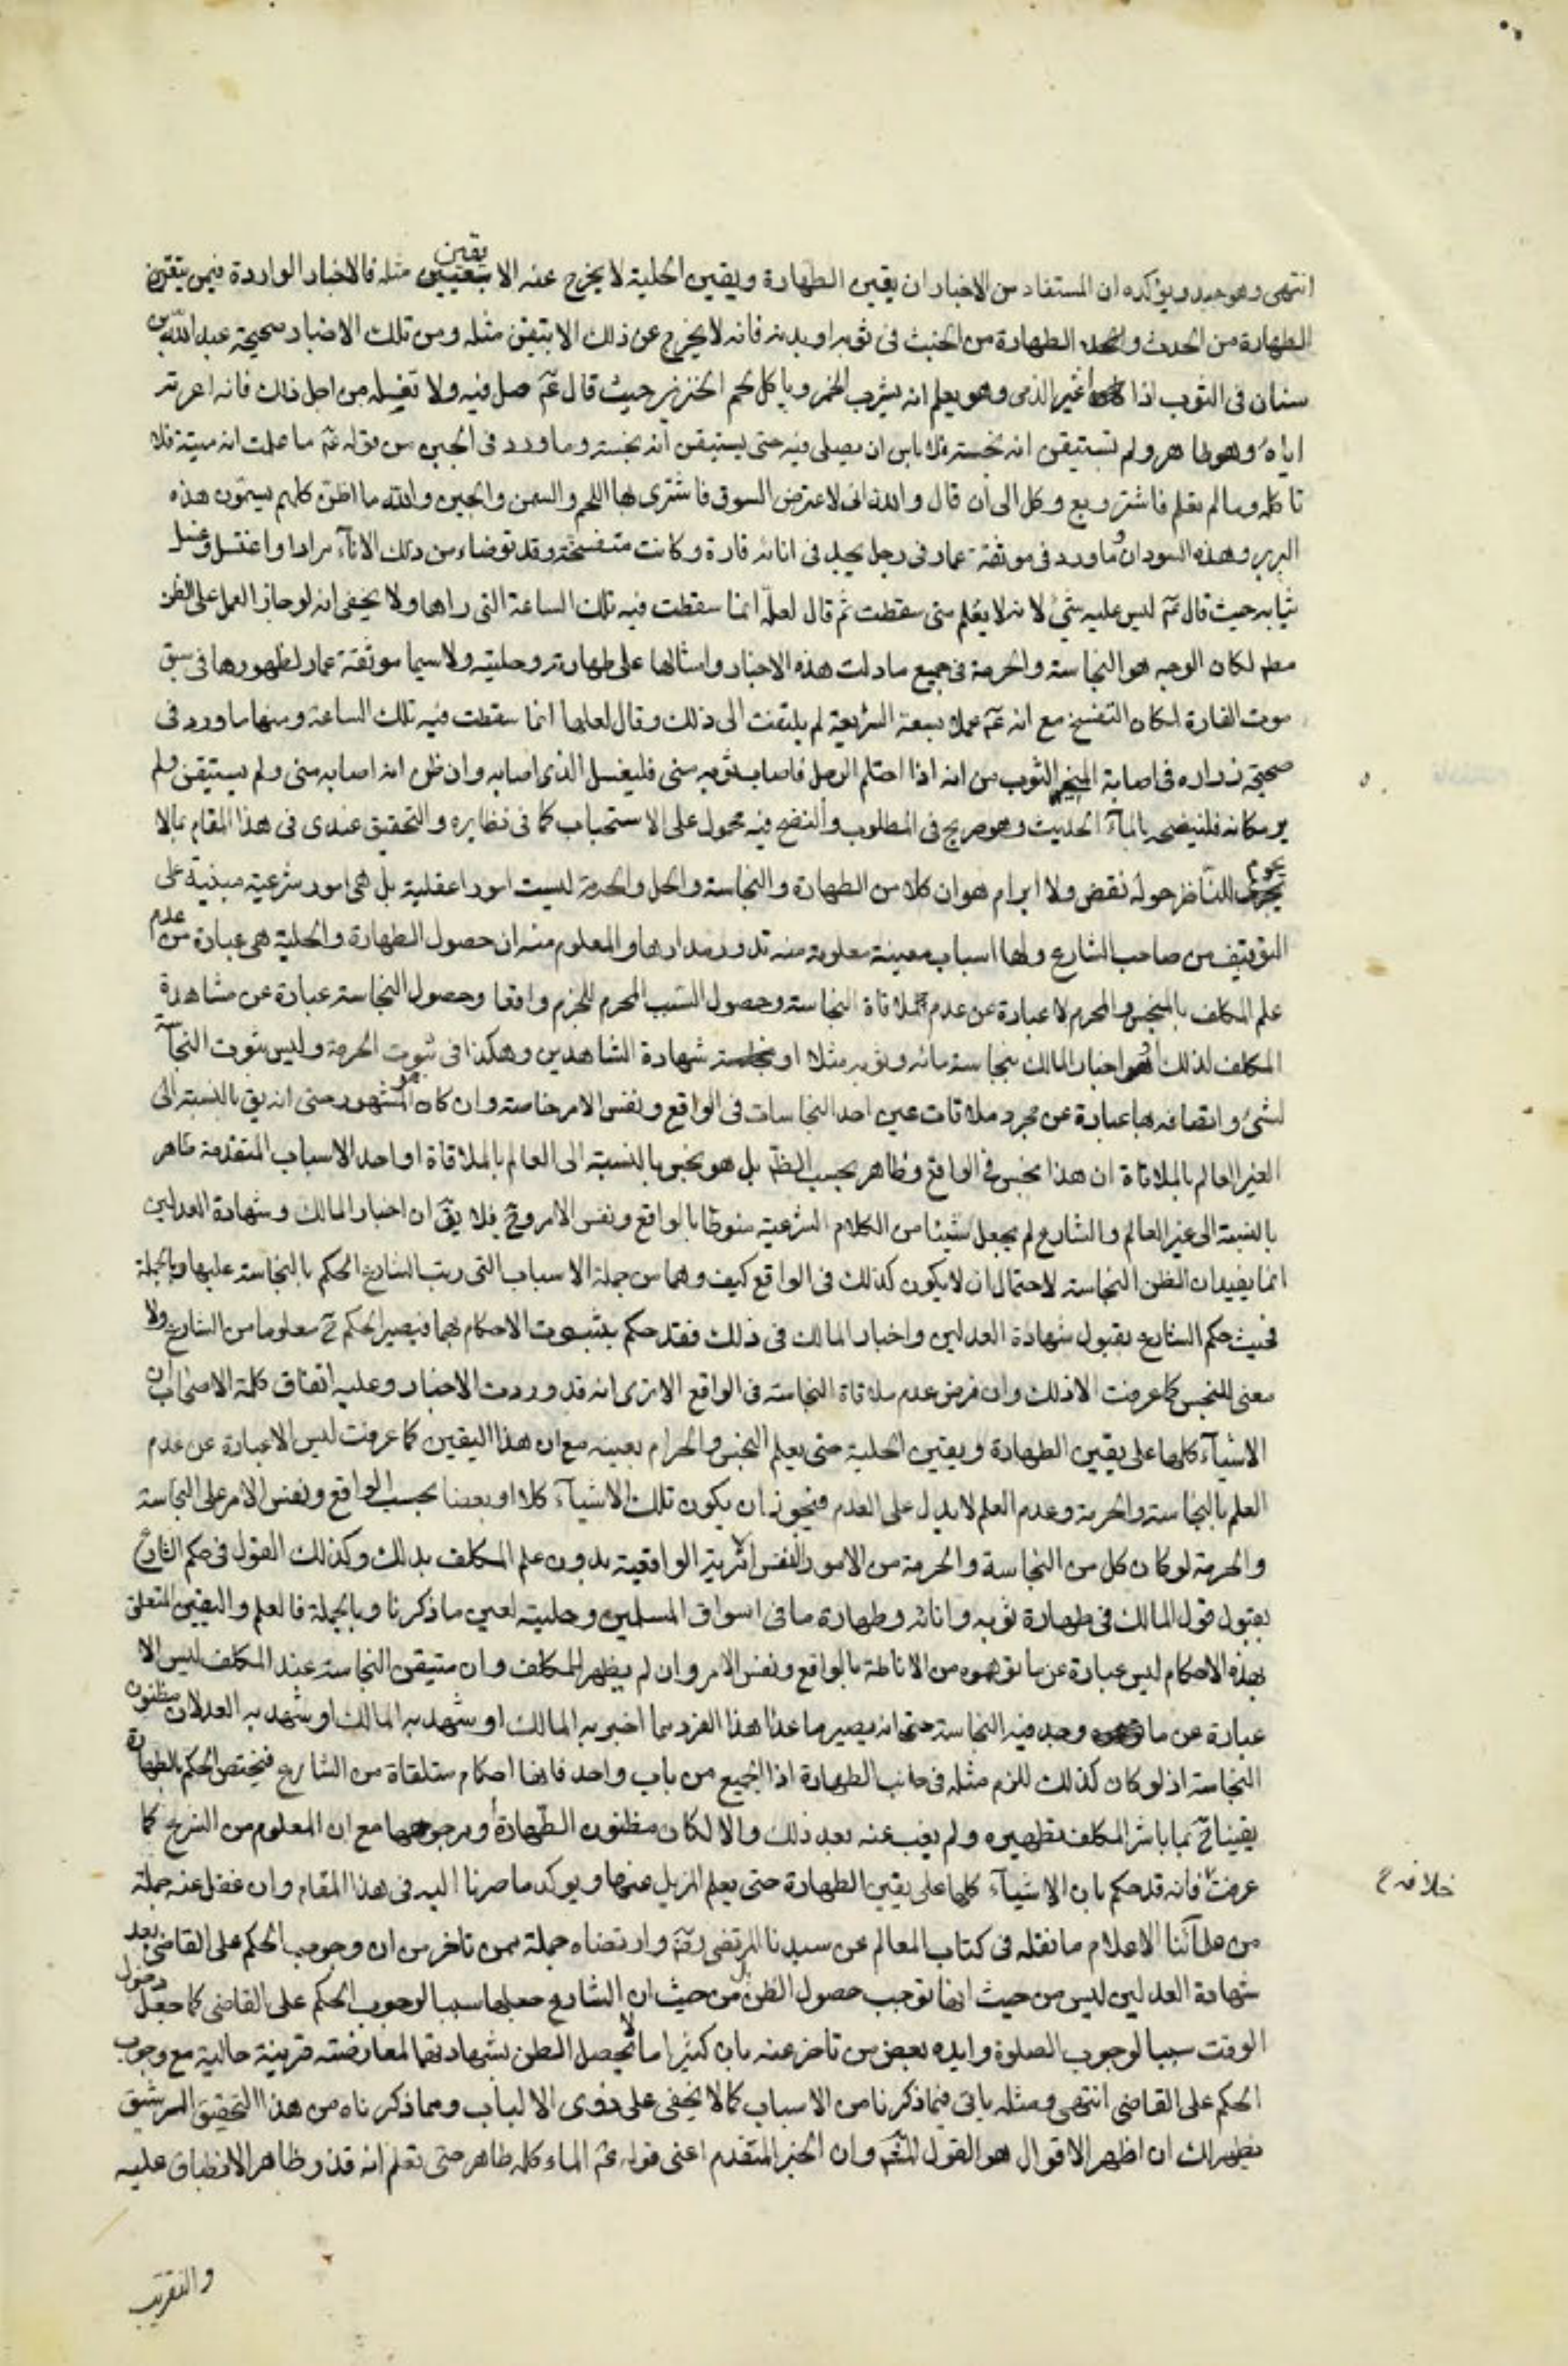 انتهى وهو جيد ويؤكده ان المستفاد من الاخبار ان يقين الطهارة ويقين الحلية لا يخرج عنه الا بيقين مثله فالاخبار الواردة فيمن تيقن
الطهارة من الحدث والطهارة من الخبث فى ثوبه او بدنه فانه لا يخرج عن ذلك الا بتيقن مثله ومن تلك الاخبار صحيحة عبد الله بن
سنان فى الثوب اذا اعير الذمى وهو يعلم انه يشرب الخمر وياكل لحم الخنزير حيث قال عم صل فيه ولا تغسله من اجل ذلك فانه اعرته
اياه وهو طاهر ولم تستيقن انه نجسه فلا باس ان يصلى فيه حتى يستيقن انه نجسه وما ورد فى الجبن من قوله عم ما علمت انه ميتة فلا
تاكله وما لم تعلم فاشتر وبع وكل الى ان قال والله انى لاعترض السوق فاشترى لها اللحم والسمن والجبن والله ما اظن كلهم يسمون هذه
البربر وهذه السودان وما ورد فى موثقة عمار فى رجل يجد فى انائه فارة وكانت متفسخة وقد توضاء من ذلك الانآء مرارا واغتسل وغسل
ثيابه حيث قال عم ليس عليه شئ لانه لا يعلم متى سقطت ثم قال لعله انما سقطت فيه تلك الساعة التى راها ولا يخفى انه لو جاز العمل على الظن
مطم لكان الوجه هو النجاسة والحرمة فى جميع ما دلت هذه الاخبار وامثالها على طهارته وحليته ولا سيما موثقة عمار لظهورها فى سبق
موت الفارة لمكان التفسخ مع انه عم عملا بسعة الشريعة لم يلتفت الى ذلك وقال لعلها انما سقطت فيه تلك الساعة ومنها ما ورد فى
صحيحة زراره فى اصابة المنى الثوب من انه اذا احتلم الرجل فاصاب ثوبه منى فليغسل الذى اصابه وان ظن انه اصابه منى ولم يستيقن ولم
ير مكانه فلينضحه بالمآء الحديث وهو صريح فى المطلوب والنضح فيه محمول على الاستحباب كما فى نظايره والتحقيق عندى فى هذا المقام بما لا
يحوم للناظر حوله نقض ولا ابرام هو ان كلا من الطهارة والنجاسة والحل والحرمة ليست امورا عقلية بل هى امور شرعية مبنية على
التوقيف من صاحب الشارع ولها اسباب معينة معلومة منه تدور مدارها والمعلوم منه ان حصول الطهارة والحلية هى عبارة عن عدم
علم المكلف بالمنجس والمحرم لا عبارة عن عدم ملاقاة النجاسة وحصول السبب المحرم للجزم واقعا وحصول النجاسة عبارة عن مشاهدة
المكلف لذلك او اخبار المالك بنجاسة مائه وثوبه مثلا او شهادة الشاهدين وهكذا فى ثبوت الحرمة وليس ثبوت النجآسة
لشئ واتصافه بها عبارة عن مجرد ملاقات عين احد النجاسات فى الواقع ونفس الامر خاصة وان كان هو المشهور حتى انه يق بالنسبة الى
الغير العالم بالملاقاة ان هذا نجس فى الواقع وطاهر بحسب الظم بل هو نجس بالنسبة الى العالم بالملاقاة او احد الاسباب المتقدمة طاهر
بالنسبة الى غير العالم والشارع لم يجعل شيئا من الكلام الشرعية منوطا بالواقع ونفس الامر وح فلا يق ان اخبار المالك وشهادة العدلين
انما يفيدان الظن النجاسة لاحتمال ان لا يكون كذلك فى الواقع كيف وهما من جملة الاسباب التى رتب الشارع الحكم بالنجاسة عليها وبالجملة
فحيث حكم الشارع بقبول شهادة العدلين واخبار المالك فى ذلك فقد حكم بثبوت الاحكام بهما فيصير الحكم ح معلوما من الشارع ولا
معنى للنجس كما عرفت الا ذلك وان فرض عدم ملاقاة النجاسة فى الواقع الا ترى انه قد وردت الاخبار وعليه اتفاق كلمة الاصحاب ان
الاشيآء كلها على يقين الطهارة ويقين الحلية حتى يعلم النجس والحرام بعينه مع ان هذا اليقين كما عرفت ليس الا عبارة عن عدم
العلم بالنجاسة والحرمة وعدم العلم لا يدل على العدم فيجوز ان يكون تلك الاشيآء كلا او بعضا بحسب الواقع ونفس الامر على النجاسة
والحرمة لو كان كل من النجاسة والحرمة من الامور النفس الامرية الواقعية بدون علم المكلف بذلك وكذلك القول فى حكم الشارع
بقبول قول المالك فى طهارة ثوبه وانائه وطهارة ما فى اسواق المسلمين وحليته لعين ما ذكرنا وبالجملة فالعلم واليقين المتعلق
بهذه الاحكام ليس عبارة عن ما توهموه من الاناطة بالواقع ونفس الامر وان لم يظهر للمكلف وان متيقن النجاسة عند المكلف ليس الا
عبارة عن ما وجد فيه النجاسة حتى انه يصير ما عدا هذا الفرد مما اخبر به المالك او شهد به المالك او شهد به العدلان مظنون
النجاسة اذ لو كان كذلك للزم مثله فى جانب الطهارة اذ الجميع من باب واحد فانها احكام متلقاة من الشارع فيختص الحكم بالطهارة
يقينا ح بما باشر المكلف تطهيره ولم يغب عنه بعد ذلك والا لكان مظنون الطهارة او مرجوحها مع ان المعلوم من الشرع كما
عرفت خلافه فانه قد حكم بان الاشيآء كلها على يقين الطهارة حتى يعلم المزيل عنها ويوكد ما صرنا اليه فى هذا المقام وان غفل عنه جملة
خلافه ح
من علمآئنا الاعلام ما نقله فى كتاب المعالم عن سيدنا المرتضى رضه وارتضاه جملة ممن تاخر من ان وجوب الحكم على القاضى بعد
شهادة العدلين ليس من حيث انها توجب حصول الظن بل من حيث ان الشارع جعلها سببا لوجوب الحكم على القاضى كما جعل دخول
الوقت سببا لوجوب الصلوة وايده بعض من تاخر عنه بان كثيرا ما لا يحصل الظن بشهادتهما لمعارضته قرينة حالية مع وجوب
الحكم على القاضى انتهى ومثله ياتى فيما ذكرنا من الاسباب كما لا يخفى على ذوى الالباب ومما ذكرناه من هذا التحقيق الرشيق
يظهر لك ان اظهر الاقوال هو القول وان الخبر المتقدم اعنى قوله عم الماء كله طاهر حتى تعلم انه قذر ظاهر الانطباق عليه
والتقريب